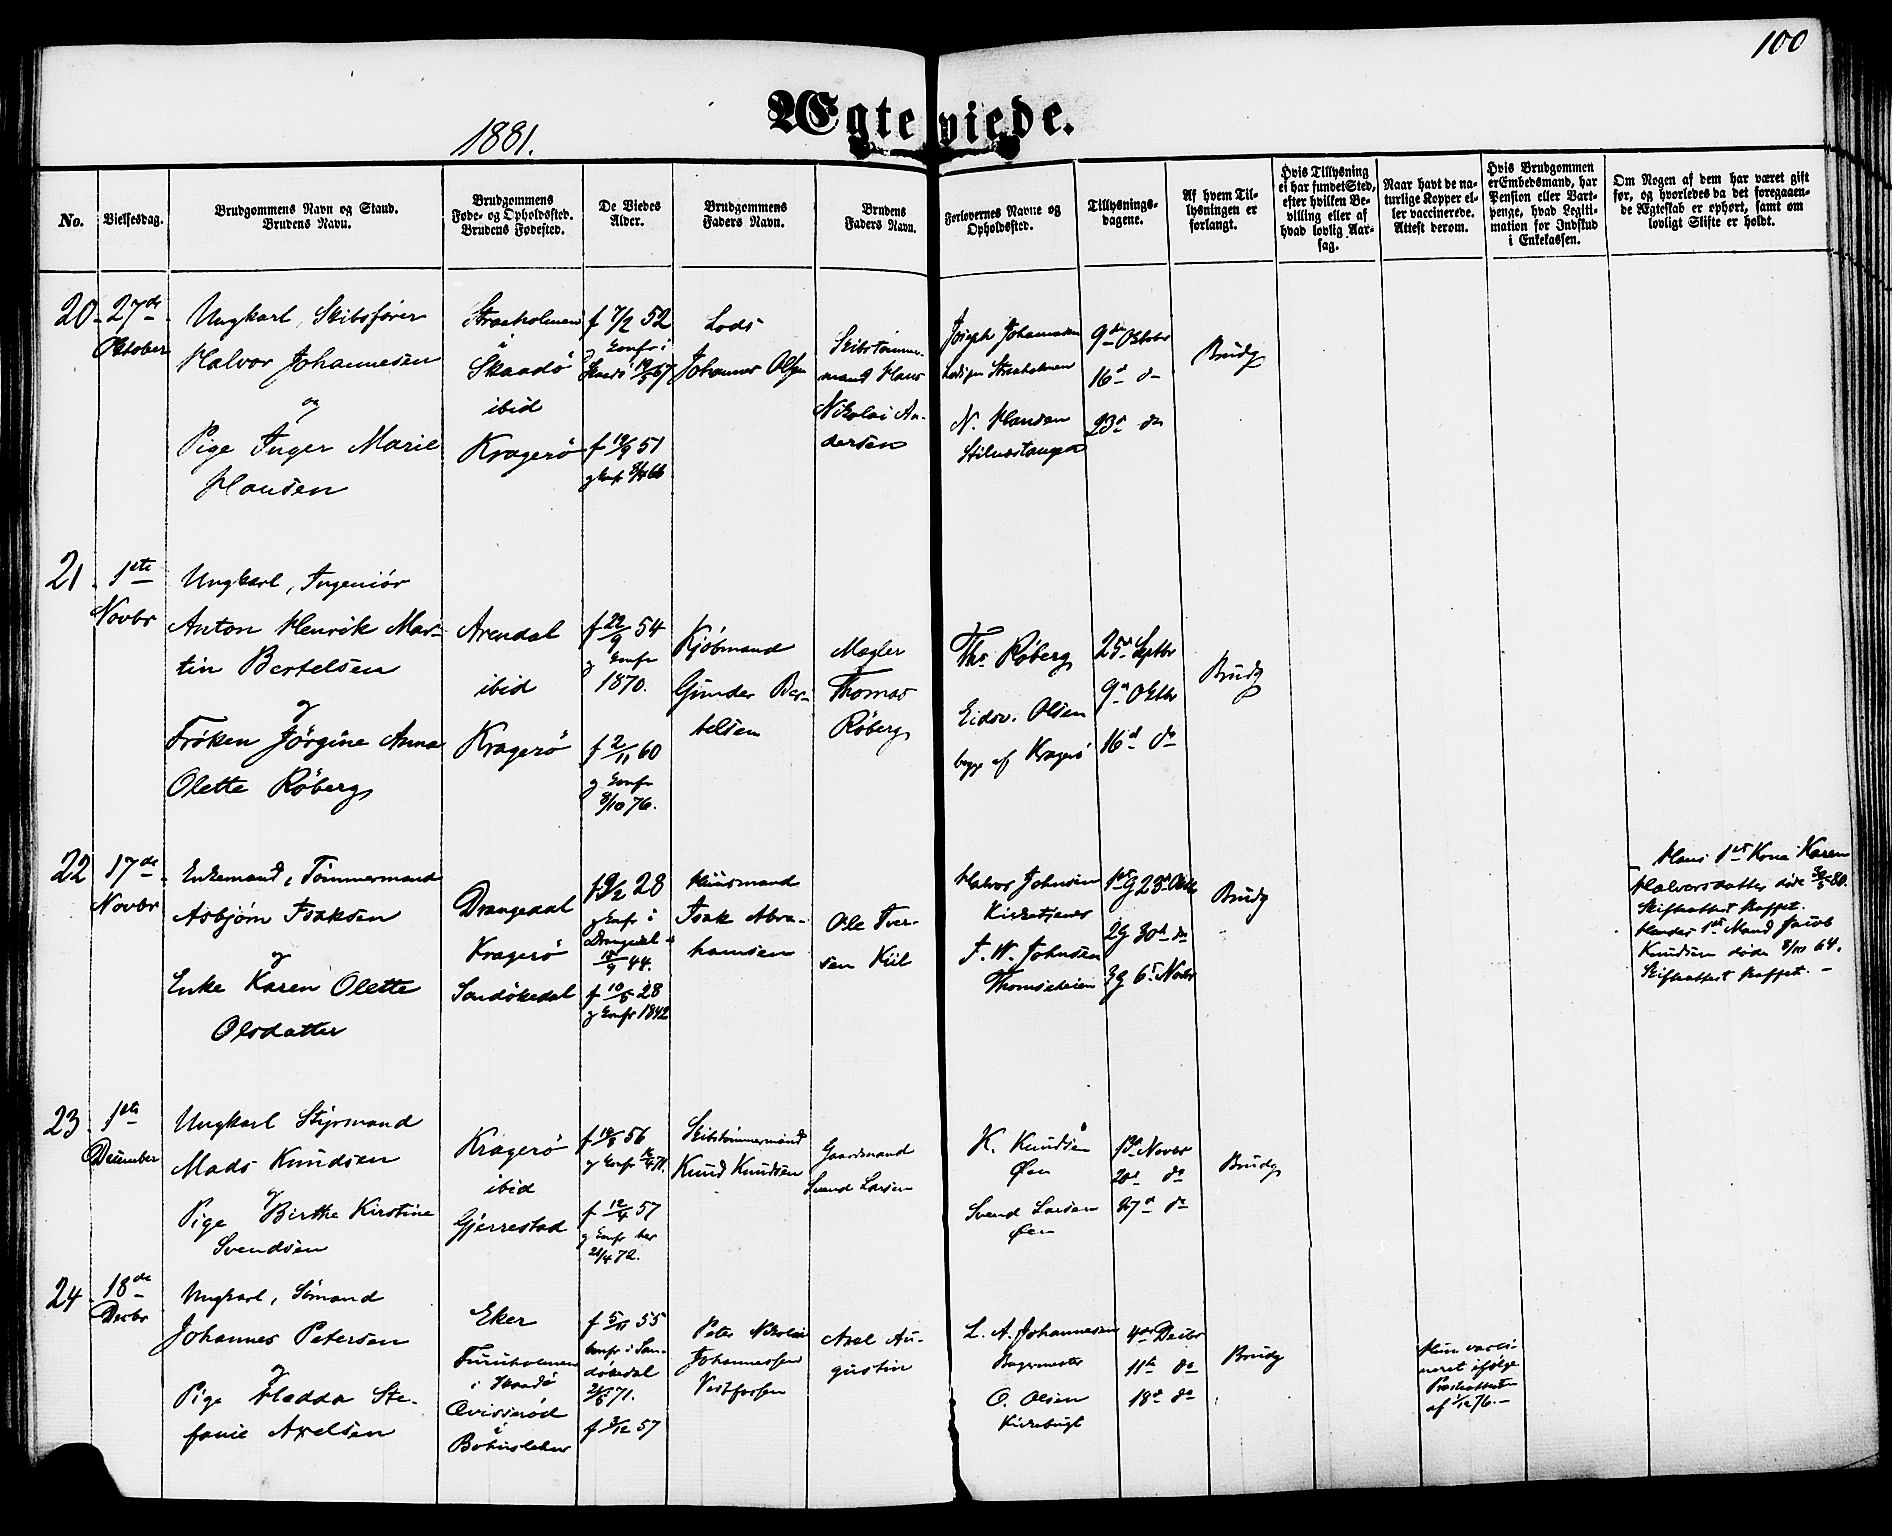 100
Ægteviede.
1881.
No.
Vielsesdag.
Brudgommens Navn og Stand.
Brudens Navn.
Brudgommens
Føde- og Opholdssted.
Brudens Fødested.
De Viedes
Alder.
Brudgommens
Faders Navn.
Brudens
Faders Navn.
Forlovernes Navne og
Opholdssted.
Tillysnings-
dagene.
Af hvem Til-
lysningen er
forlangt.
Hvis Tillysning
ei har fundet Sted,
efter hvilken Be-
villing eller af
hvad lovlig Aar-
sag.
Naar havt de na-
turlige Kopper el-
ler vaccinerede.
Attest derom.
Hvis Brudgommen
er Embedsmand, har
Pension eller Vart-
penge, hvad Legiti-
mation for Indskud
i Enkekassen.
Om Nogen af dem har været gift
før, og hvorledes da det foregaaen-
de Ægteskab er ophørt, samt om
lovligt Skifte er holdt.
20.
27de
Oktober
Ungkarl, Skibsfører
Halvor Johannesen
og
Pige Inger Marie
Hansen
Straaholmen
Skaadö
ibid
Kragerö
f 7/2 52
g Conf i
f 19/9 51
g Conf
Lods
Johannes Olsen
Skibstömmer-
mand Hans
Nikolai An-
dersen
Joseph Johannesen
Straaholmen
N. Hansen
Stilnestangen
9de Oktobr
16d do
23d do
Brudg
21.
1ste
Novbr
Ungkarl, Ingeniör
Anton Henrik Mar-
tin Bertelsen
og
Fröken Jörgine Anna
Olette Röberg
Arendal
ibid
Kragerö
f 22/9 54
g Conf
1870.
f 2/11 60
g Conf
8/10 76.
Kjöbmand
Gunder Ber-
telsen
Mægler
Thomas
Röberg
Ths Röberg
Eidsv. Olsen
begge af Kragerö
25d Septbr
9d Oktbr
16d do
Brudg
22
17de
Novbr
Enkemand, Tömmermand
Asbjörn Isaksen
og
Enke Karen Olette
Olsdatter
Drangedal
Kragerö
Sandökedal
28
g Conf i
Drangedal
44.
f 10/5 28
g Conf 1842
Huusmand
Isak Abra-
hamsen
Ole Iver-
sen Kiil
Halvor Johnsen
Kirketjener
J. W. Johnsen
Thomseheien
1ste G 23d Oktb
2 G 30d do
3 G 6t Novbr
Brudg
Hans 1st Kone Karen
Halvorsdatter döde 80.
Skifteattest skaffet.
Hendes 1st Mand Jacob
Knudsen döde 8/10 64.
Skifteattest skaffet. –
23.
1ste
December
Ungkarl Styrmand
Mads Knudsen
og
Pige Birthe Kirstine
Svendsen
Kragerö
ibid
Gjerrestad
56
g Conf 71.
f 12/4 57
g Conf her
21/4 72.
Skibstömmermand
Knud Knudsen
Gaardmand
Svend Larsen
K. Knudsen
Öen
Svend Larsen
Öen
13d Novbr
20d do
27d do
Brudg
24.
18de
Decbr
Ungkarl, Sömand
Johannes Petersen
og
Pige Hedda Ste-
fanie Axelsen
Eker
Furuholmen
i Skaadö
Qvisseröd
Bohuslehn
55
Conf i San-
dökedal
71.
f 3/12 57
Peter Nikolai
Johannessen
Vestfossen
Axel Au-
gustin
L. A. Johannesen
Bagermester
O. Olsen
Kirkebugt
4de Decbr
11te do
18d do
Brudg
Hun vacci-
neret ifölge
Præsteattest
af 76. –